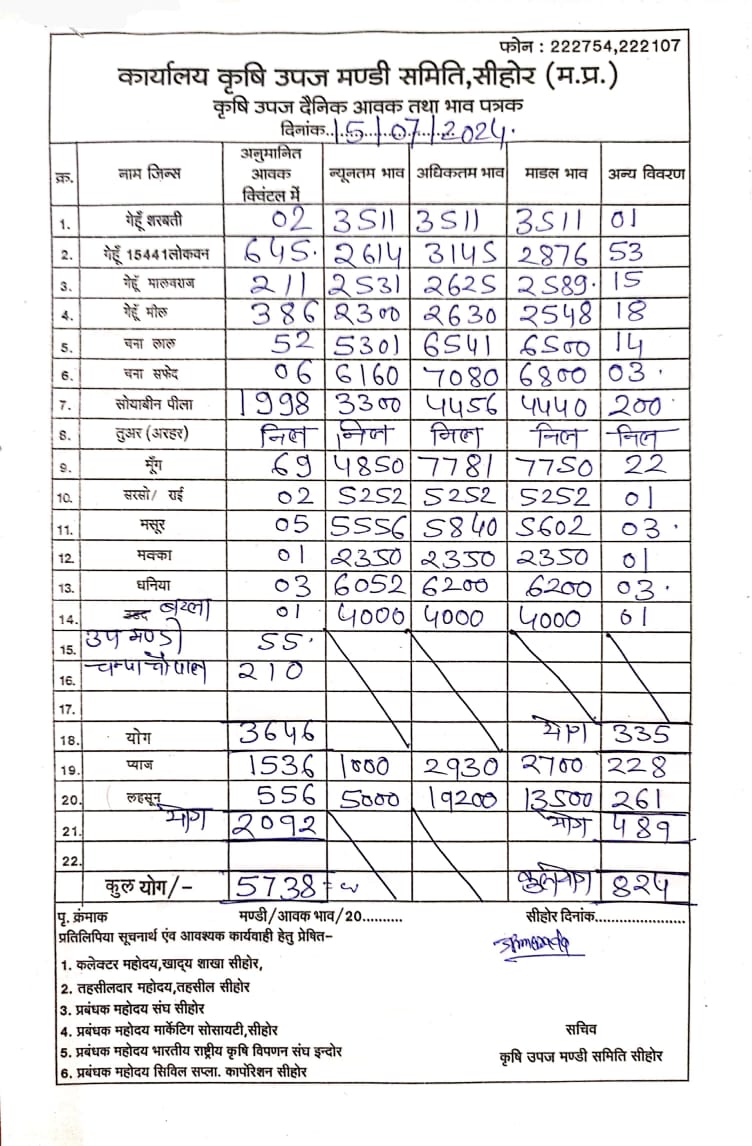 फोन : 222754,222107
कार्यालय कृषि उपज मण्डी समिति,सीहोर (म.प्र.)
कृषि उपज दैनिक आवक तथा भाव पत्रक
दिनांक..15/07/2024.
क्र. नाम जिन्स अनुमानित आवक क्विंटल में न्यूनतम भाव अधिकतम भाव माडल भाव अन्य विवरण
1. गेहूँ शरबती 02 3511 3511 3511 01
2. गेहूँ 15441लोकवन 645. 2614 3145 2876 53
3. गेहूँ मालवराज 211 2531 2625 2589. 15
4. गेहूँ मील 386 2300 2630 2548 18
5. चना लाल 52 5301 6541 6500 14
6. चना सफेद 06 6160 7080 6800 03.
7. सोयाबीन पीला 1998 3300 4456 4440 200.
8. तुअर (अरहर) निल निल निल निल निल
9. मूँग 69 4850 7781 7750 22
10. सरसो/ राई 02 5252 5252 5252 01
11. मसूर 05 5556 5840 5602 03.
12. मक्का 01 2350 2350 2350 01
13. धनिया 03 6052 6200 6200 03.
14. 01 4000 4000 4000 01
15. उप मण्डी 55.
16. 210
17.
18. योग 3646 योग 335
19. प्याज 1536 1000 2930 2700 228
20. लहसून 556 5000 19200 13500 261
21. योग 2092 योग 489
22.
कुल योग/- 5738 कुलयोग 824
पृ. क्रंमाक मण्डी/आवक भाव/20.......... सीहोर दिनांक......................
प्रतिलिपिया सूचनार्थ एंव आवश्यक कार्यवाही हेतु प्रेषित-
1. कलेक्टर महोदय,खाद्य शाखा सीहोर,
2. तहसीलदार महोदय,तहसील सीहोर
3. प्रबंधक महोदय संघ सीहोर
4. प्रबंधक महोदय मार्केटिग सोसायटी,सीहोर सचिव
5. प्रबंधक महोदय भारतीय राष्ट्रीय कृषि विपणन संघ इन्दोर कृषि उपज मण्डी समिति सीहोर
6. प्रबंधक महोदय सिविल सप्ला. कार्पोरेशन सीहोर